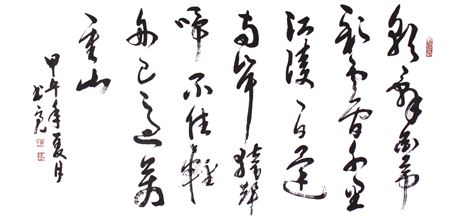 朝辞白帝
彩雲間千里
江陵一日還
兩岸猿聲
啼不住輕
舟已過萬
重山
甲午年夏月